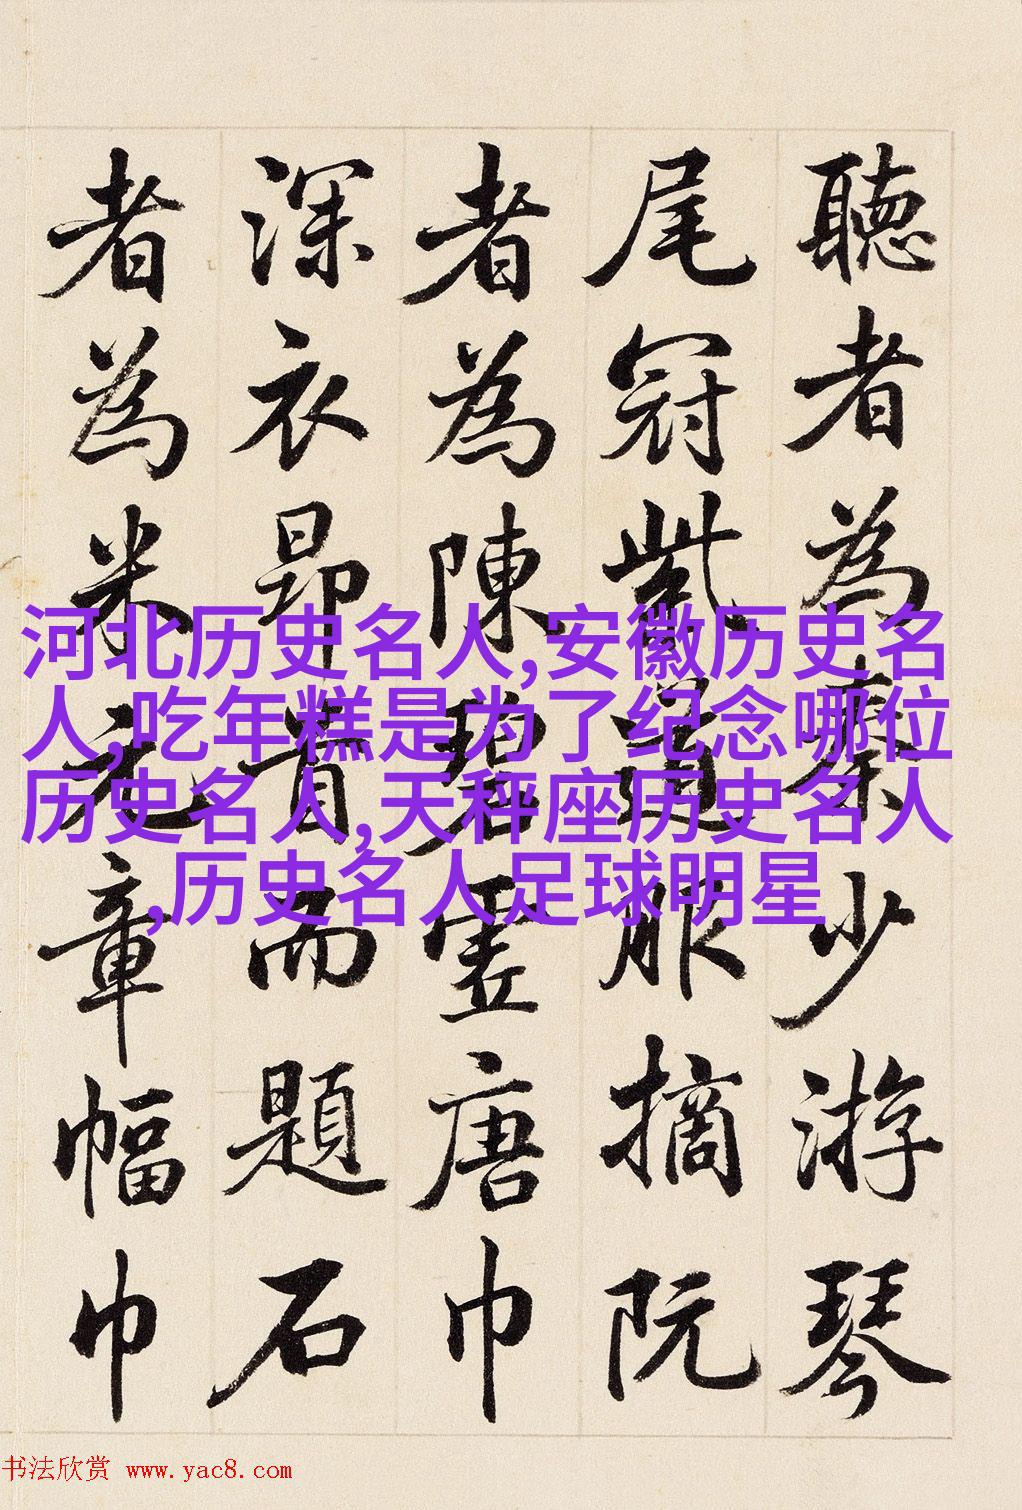 聽者為秦少游琴
尾冠紫道服摘阮
者為陳碧虛唐巾
深衣昂首而題石
者為米元章幅巾
河北历史名人,安徽历史名
人,吃年糕是为了纪念哪位
历史名人,天秤座历史名人
,历史名人足球明星
书法欣赏 www.yac8.com